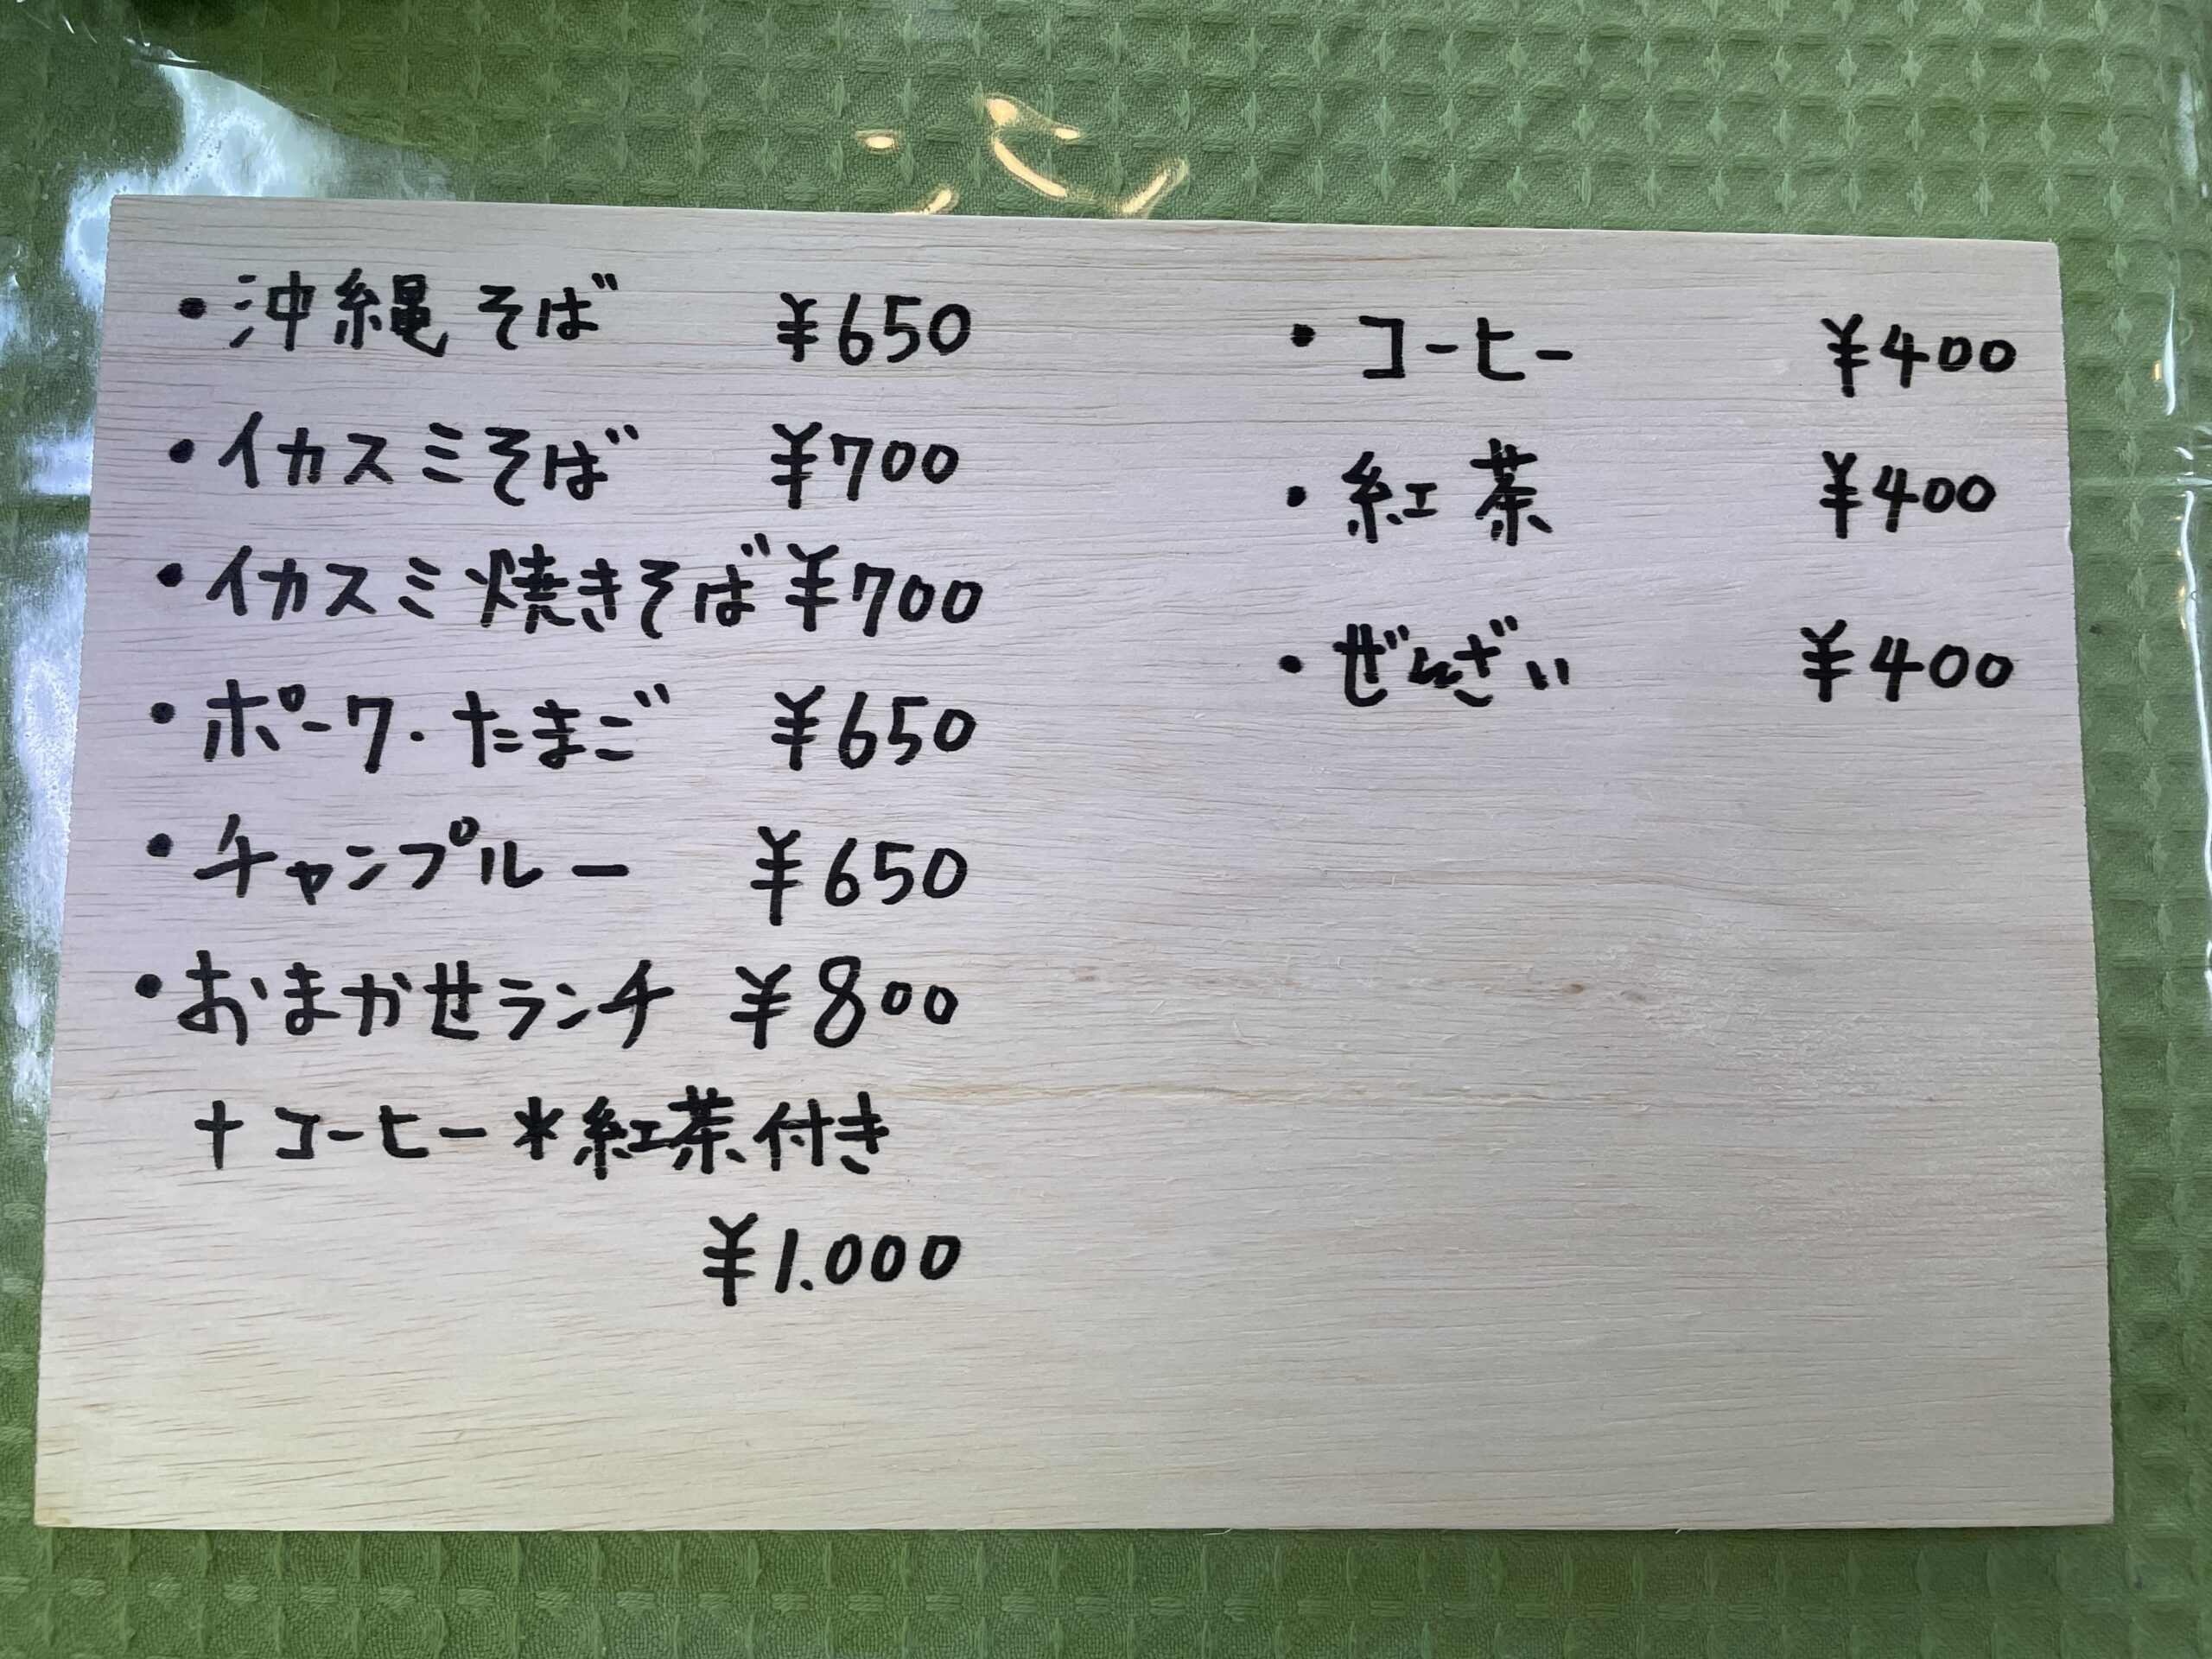 ・沖縄そば ¥650
・イカスミそば ¥700
・イカスミ焼きそば ¥700
・ポーク・たまご ¥650
・チャンプルー ¥650
・おまかせランチ ¥800
+コーヒー*紅茶付き
¥1.000
・コーヒー ¥400
・紅茶 ¥400
・ぜんざい ¥400